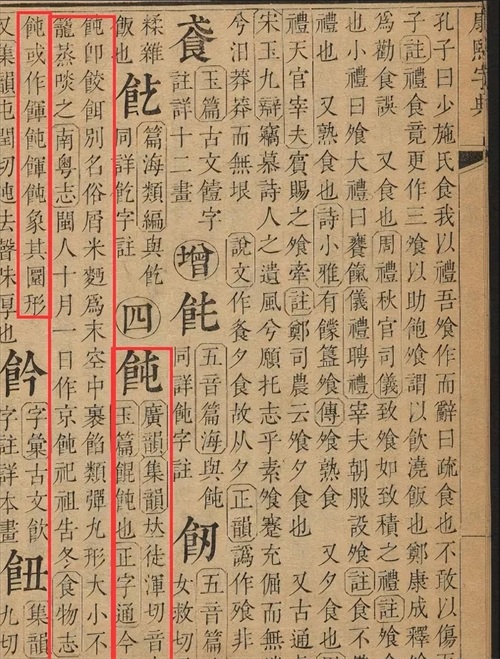 康熙字典
孔子曰少施氏食我以禮吾飧作而辭曰疏食也不敢以傷
子註禮食竟更作三飧以助飽飧謂以飲澆飯也鄭康成釋
爲勸食誤 又食也周禮秋官司儀致飧如致積之禮註飧食
也小禮曰飧大禮曰饔餼儀禮聘禮宰夫朝服設飧註食不
禮也 又熟食也詩小雅有饛簋飧傳飧熟食 又夕食也
禮天官宰夫賓賜之飧牽註鄭司農云飧夕食也 又古通
宋玉九辯竊慕詩人之遺風兮願托志乎素飧蹇充倔而無
兮汨莽莽而無垠 說文作飧夕食故从夕正韻譌作飱非
玉篇古文饐字
註詳十二畫
增 飥
五音篇海與飩
同詳飩字註
五音篇
女救切
糅雜
飯也
篇海類編與飥
同詳飥字註
四 飩
廣韻集韻𠀤徒渾切音
玉篇餛飩也正字通今
飩卽餃餌別名俗屑米麪爲末空中裹餡類彈丸形大小不
籠蒸啖之南粵志閩人十月一日作京飩祀祖告冬食物志
飩或作餫飩餫飩象其圓形
又集韻屯閏切飩去聲味厚也
字彙古文飮
字註詳本畫
飪
集韻
九切